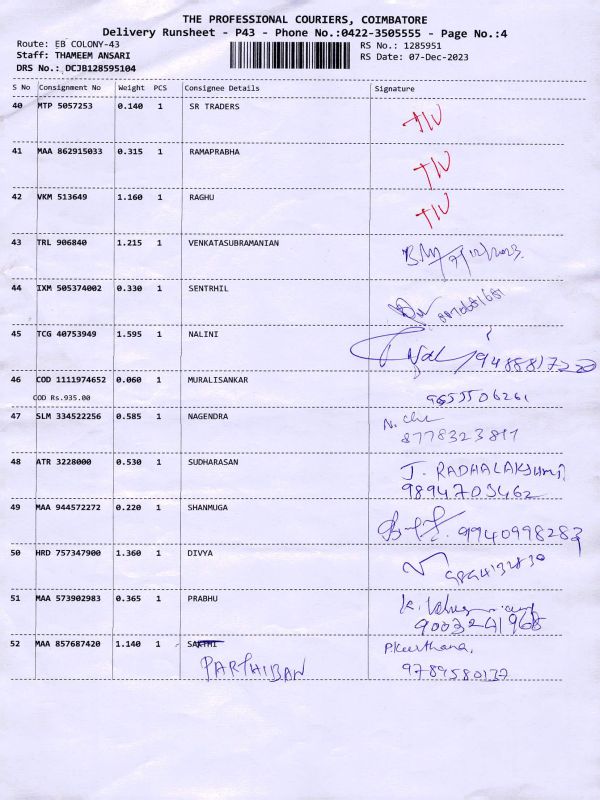 THE PROFESSIONAL COURIERS, COIMBATORE
Delivery Runsheet - P43 - Phone No.:0422-3505555 - Page No.:4
Route: EB COLONY-43 RS No.: 1285951
Staff: THAMEEM ANSARI RS Date: 07-Dec-2023
DRS No.: DCJB128595104
S No Consignment No Weight PCS Consignee Details Signature
40 MTP 5057253 0.140 1 SR TRADERS
41 MAA 862915033 0.315 1 RAMAPRABHA
42 VKM 513649 1.160 1 RAGHU
43 TRL 906840 1.215 1 VENKATASUBRAMANIAN 7/12/2023
44 IXM 505374002 0.330 1 SENTRHIL
45 TCG 40753949 1.595 1 NALINI 9488817220
46 COD 1111974652 0.060 1 MURALISANKAR 9655506261
COD Rs.935.00
47 SLM 334522256 0.585 1 NAGENDRA
48 ATR 3228000 0.530 1 SUDHARASAN J. RADHALAKSHMI
9894703462
49 MAA 944572272 0.220 1 SHANMUGA 9940998283
50 HRD 757347900 1.360 1 DIVYA
51 MAA 573902983 0.365 1 PRABHU
9003241968
52 MAA 857687420 1.140 1 SAKTHI P.Keerthana,
PARTHIBAN 9789580137